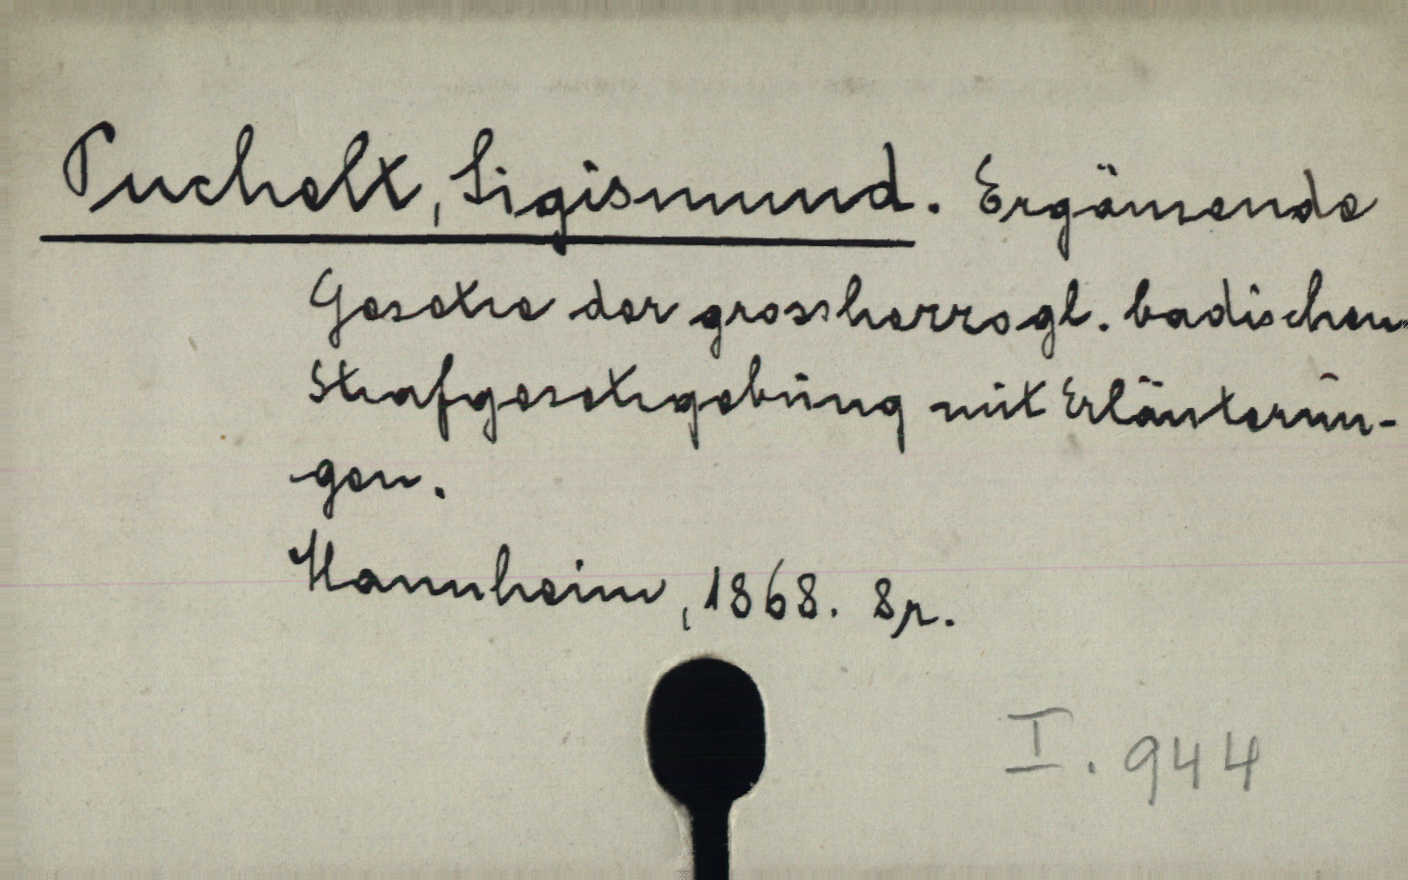 Puchelt, Sigismund. Ergänzende
Gesetze der grossherzogl. badischen
Strafgesetzgebung mit Erläuterun-
gen.
Mannheim, 1868. 8r.
I. 944